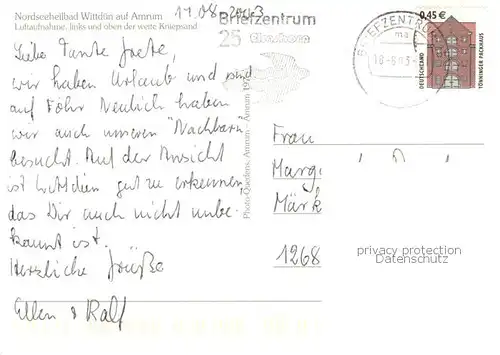 Nordseeheilbad Wittdün auf Amrum
Luftaufnahme, links und oben der weite Kniepsand
17.08.2003
Briefzentrum
25 Elmshorn
BRIEFZENTRUM
ma
18.-8.03-
0,45 €
DEUTSCHLAND
TÖNNINGER PACKHAUS
Liebe Tante Grete,
wir haben Urlaub und sind
auf Föhr Neulich haben
wir auch unseren "Nachbarn"
besucht. Auf der Ansicht
ist Wittdün gut zu erkennen,
das Dir auch nicht unbe-
kannt ist.
Herzliche Grüße
Ellen & Ralf
Photo Quedens, Amrum - Amrum
Frau
Marg
Märk
1268
privacy protection
Datenschutz